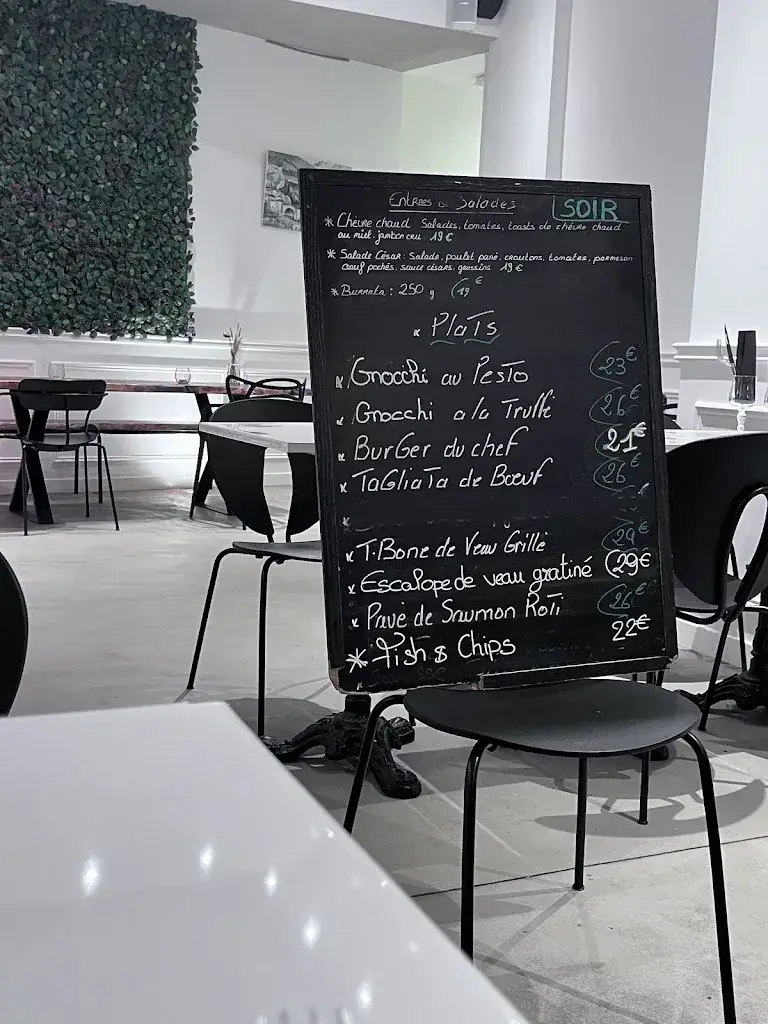 Entrées & Salades SOIR
* Chèvre chaud Salades, tomates, toasts de chèvre chaud
au miel, jambon cru 19€
* Salade César: Salade, poulet pané, croutons, tomates, parmesan
oeuf pochés, sauce césars, gressins 19€
* Burrata: 250 g 19€
* Plats
Gnocchi au Pesto 23€
Gnocchi a la Truffe 26€
BurGer du chef 21€
TaGliaTa de Bœuf 26€
T.Bone de Veau Grillé 29€
Escalope de veau gratiné 29€
Pavé de Saumon Roti 26€
* Fish & Chips 22€